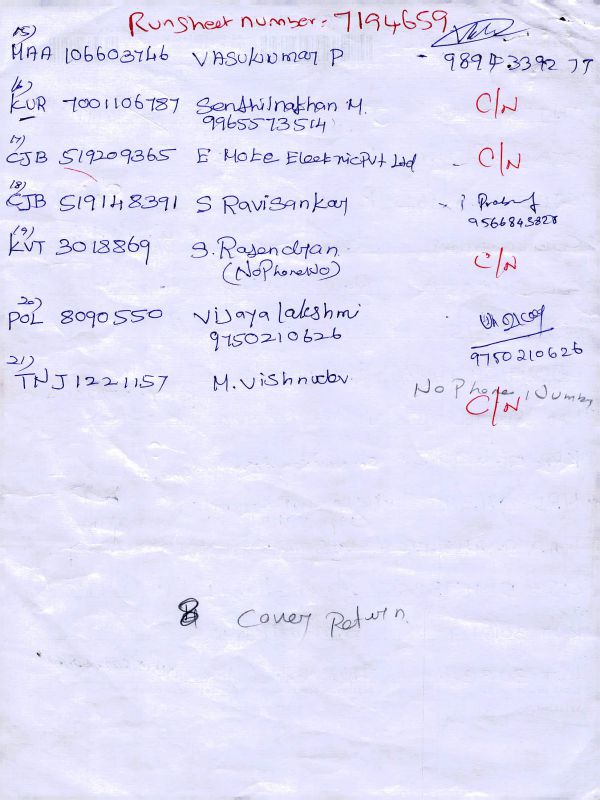 Runsheet number:- 7194659
15)
MAA 106603746 VASUKUMAR P - 9894339277
16)
KUR 7001106787 Senthilnathan M. C/N
9965573514
17)
CJB 519209365 E Mote Electric Pvt Ltd - C/N
18)
CJB 519148391 S Ravisankar -
9566843828
19)
KVT 3018869 S. Rajendran
(No Phone No) C/N
20)
POL 8090550 Vijaya lakshmi
9750210626
9750210626
21)
TNJ 1221157 M. Vishnudev. No Phone Number
C/N
8 Cover Return